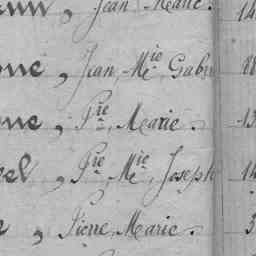 Jean Marie. 14
, Jean, Mie Gabri
, Pre, Marie. 13
, Pre, Mie, Joseph 14
, Pierre Marie. 3